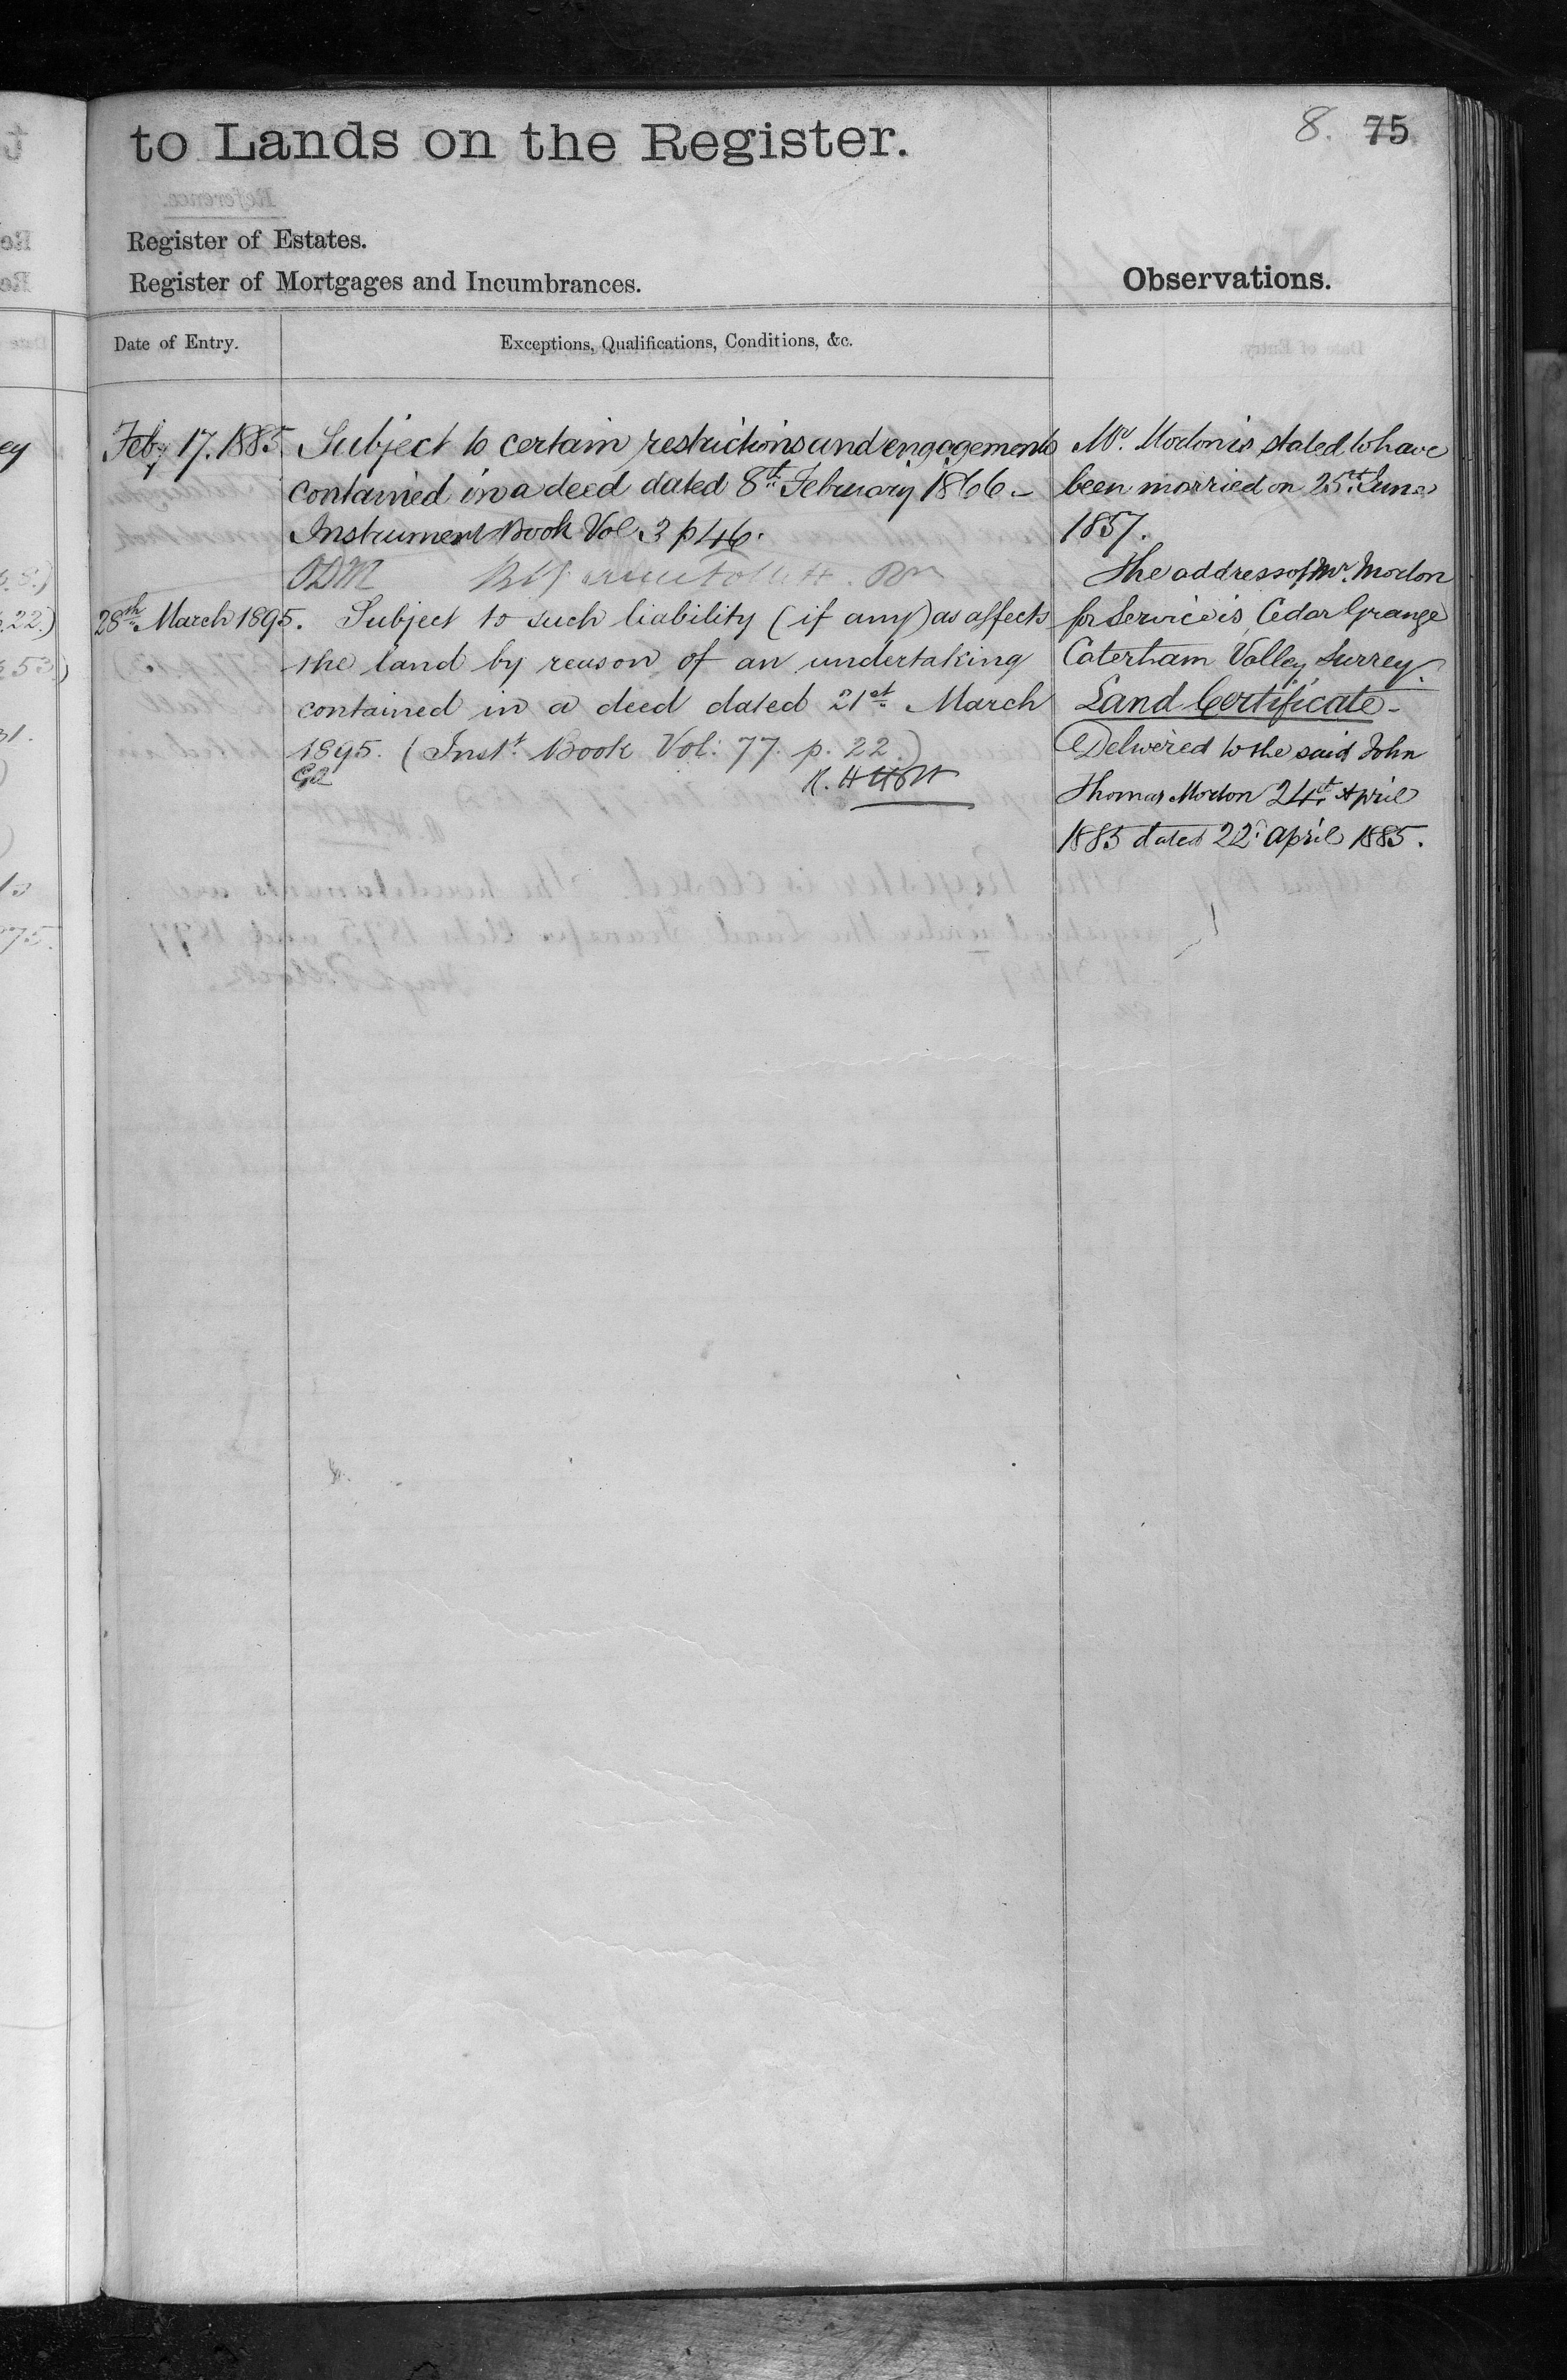 to Lands on the Register.
8. 75
Register of Estates.
Register of Mortgages and Incumbrances.
Observations.
Date of Entry.
Exceptions, Qualifications, Conditions, &c.
Feby 17. 1885
Subject to certain restrictions and engagements
contained in a deed dated 8th February 1866 –
Instrument Book Vol 3 p 46.
ODM
28th March 1895.
Subject to such liability (if any) as affects
the land by reason of an undertaking
contained in a deed dated 21st March
1895. (Inst. Book Vol: 77. p. 22.)
Mr. Morton is stated to have
been married on 25th June
1857.
The address of Mr. Morton
for Service is Cedar Grange
Caterham Valley, Surrey.
Land Certificate –
Delivered to the said John
Thomas Morton 24th April
1885 dated 22d April 1885.